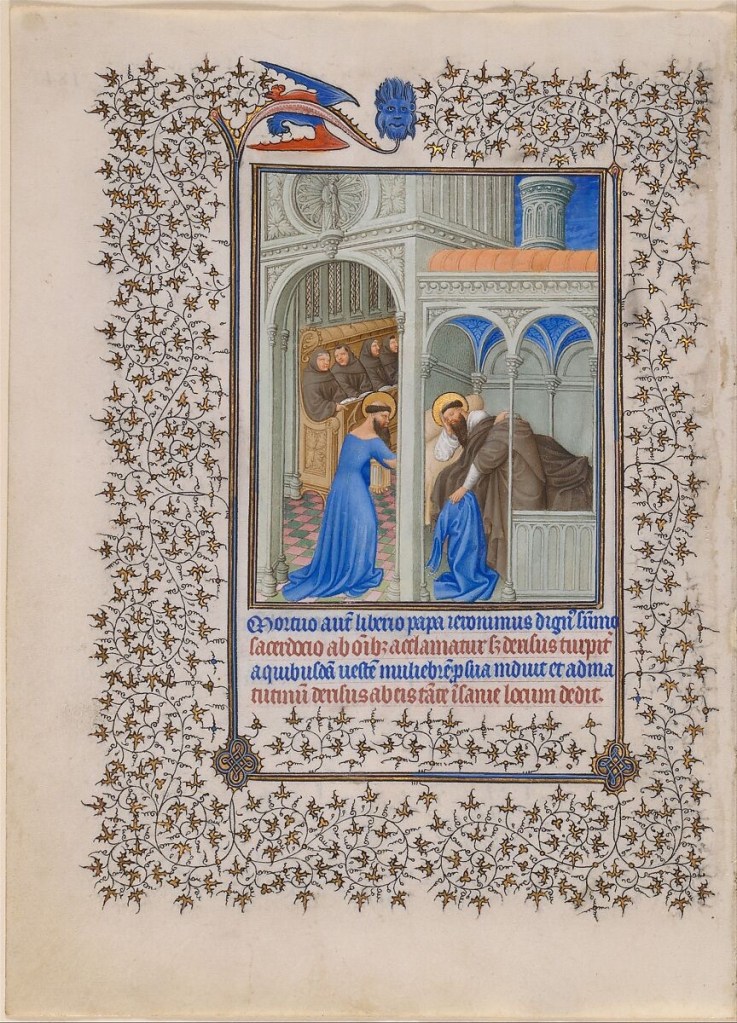 Mortuo aut̃ liberio papa ieronimus dign᷒ sūmo
sacerdocio ab oĩbꝫ acclamatur sꝫ derisus turpit̃
a quibusdā uestē muliebrē ꝓ sua induit et ad ma
tutinū derisus ab eis tāte ĩsanie locum dedit.